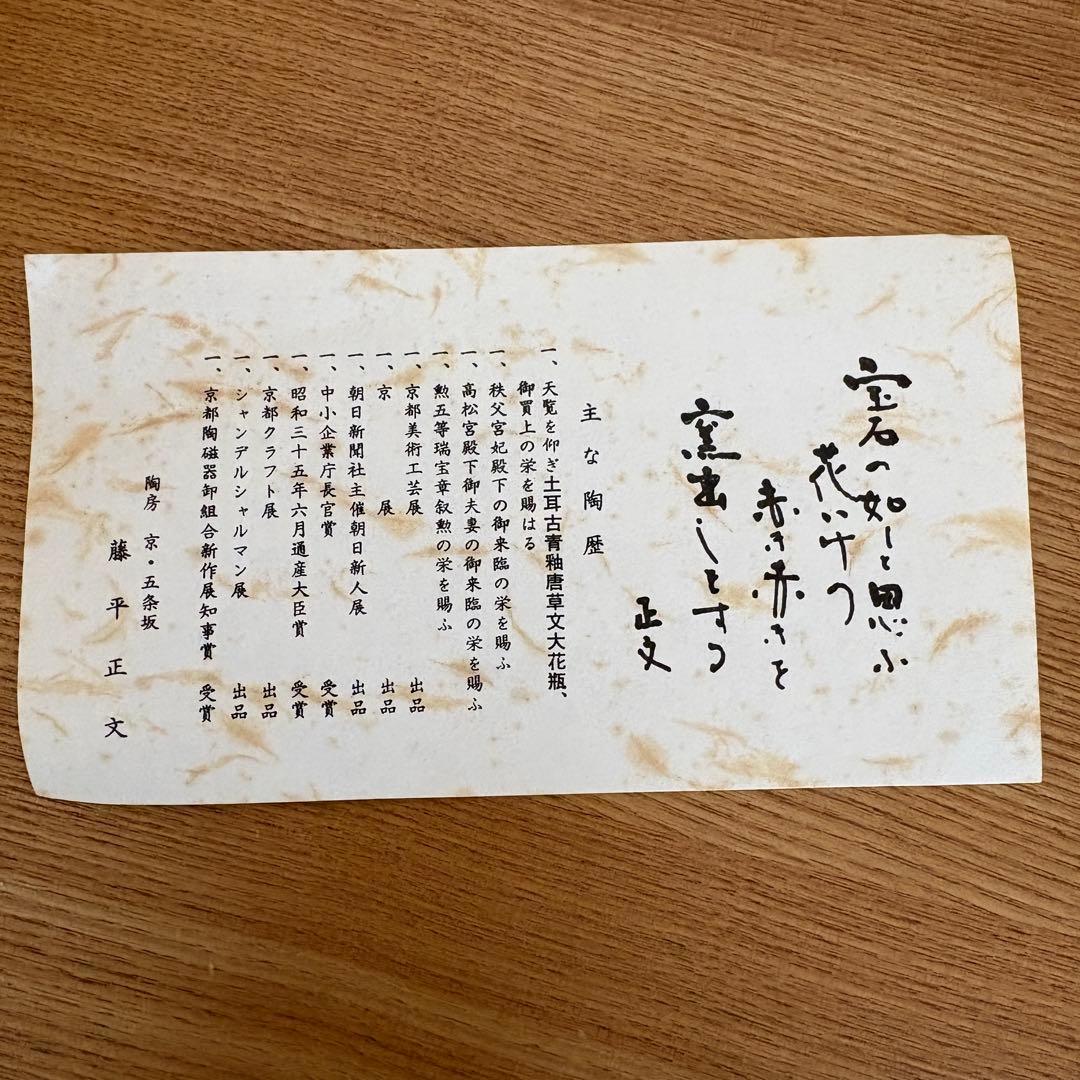 宝石の如しと思ふ
花いけの
赤き赤きを
窯出しをする
正文
主な陶歴
一、天覧を仰ぎ土耳古青釉唐草文大花瓶、
御買上の栄を賜はる
一、秩父宮妃殿下の御来臨の栄を賜ふ
一、高松宮殿下御夫妻の御来臨の栄を賜ふ
一、勲五等瑞宝章叙勲の栄を賜ふ
一、京都美術工芸展 出品
一、京展 出品
一、朝日新聞社主催朝日新人展 出品
一、中小企業庁長官賞 受賞
一、昭和三十五年六月通産大臣賞 受賞
一、京都クラフト展 出品
一、シャンデルシャルマン展 出品
一、京都陶磁器卸組合新作展知事賞 受賞
陶房 京・五条坂
藤平正文